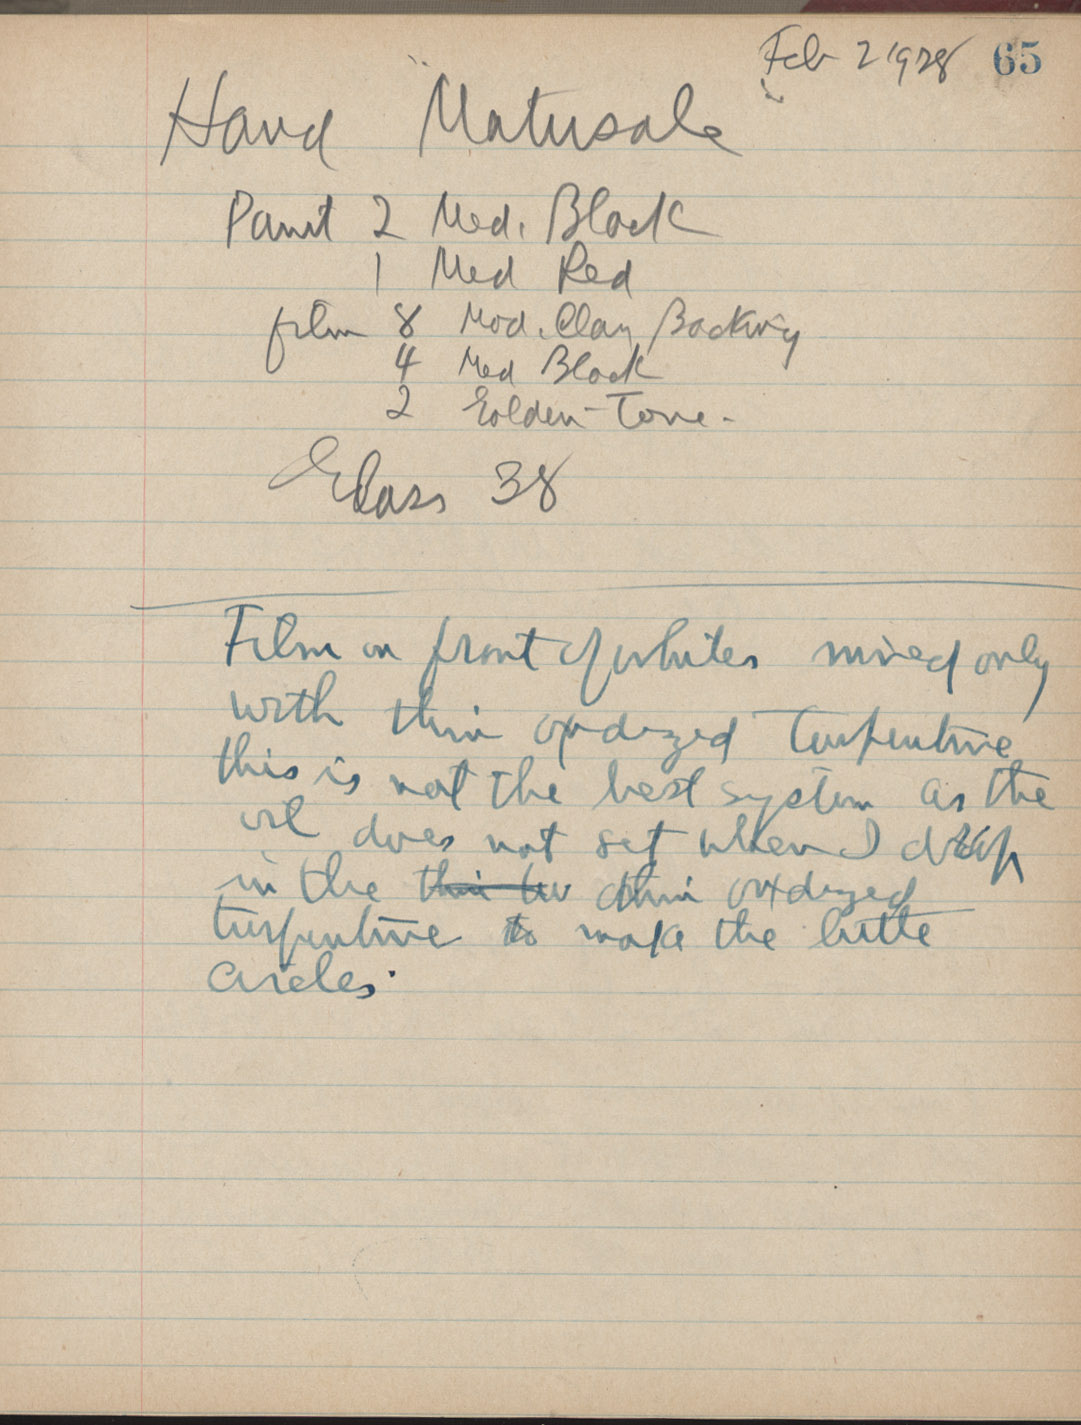 Feb 2 1928 65
Hand "Matusale"
Paint 2 Med. Black
1 Med Red
film 8 Mod. Clay Backing
4 Med Black
2 Golden-Tone-
Glass 38
Film on front of whites mixed only
with thin oxdized Turpentine
this is not the best system as the
oil does not set when I drip
in the thin tur thin oxdized
turpentine to make the little
circles.